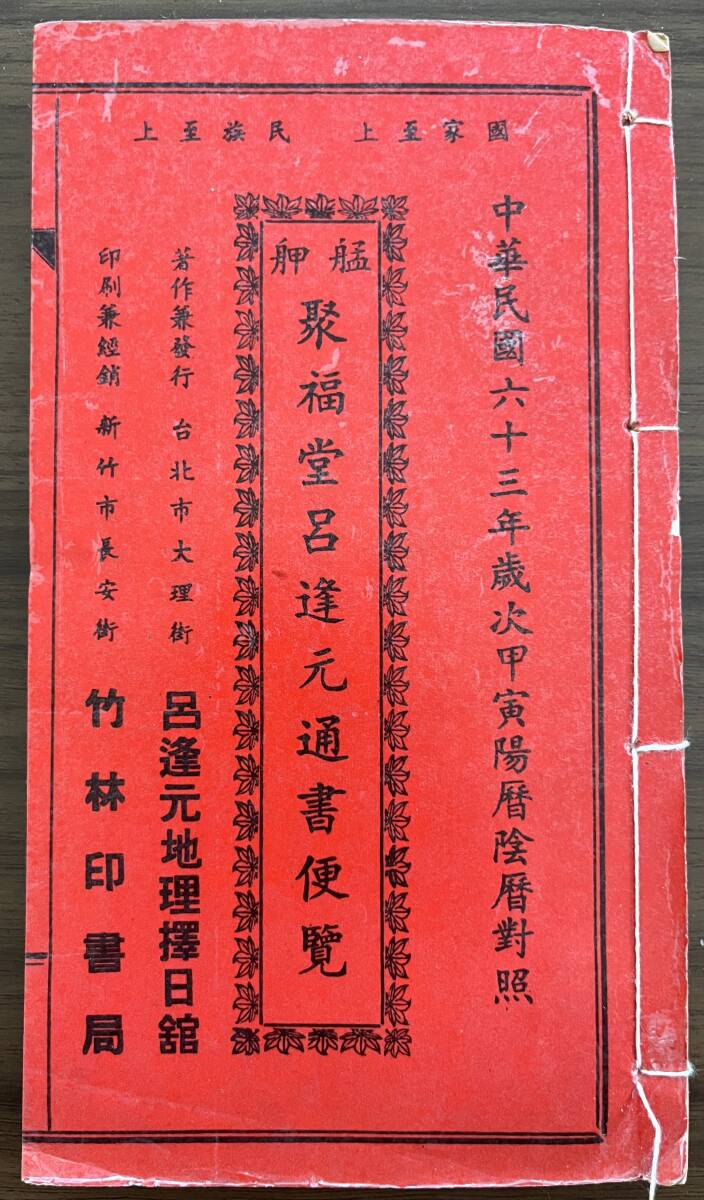 國家至上　民族至上
中華民國六十三年歲次甲寅陽曆陰曆對照
艋舺
聚福堂呂逢元通書便覽
著作兼發行　台北市大理街　呂逢元地理擇日舘
印刷兼經銷　新竹市長安街　竹林印書局